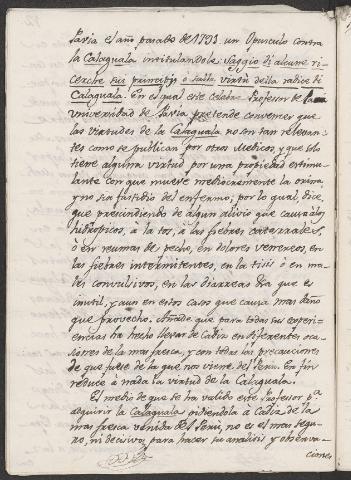 Pavia el año pasado de 1793 un Opusculo contra
la Calaguala intitulandole Saggio di alcune ri-
cerche sui principj e sulla virtù della radice di
Calaguala. En el qual este celebre Profesor de la
Universidad de Pavia pretende convencer que
las virtudes de la Calaguala no son tan relevan-
tes como se publican por otros Medicos, y que solo
tiene alguna virtud por una propiedad estimu-
lante con que mueve mediocremente la orina,
y no sin fastidio del enfermo; por lo qual, dice,
que prescindiendo de algun alivio que causa á los
hidropicos, a la tos, á las fiebres catarrales,
ó en reumas de peche, en dolores venereos, en
las fiebres intermitentes, en la tisis ó en ma-
les convulsivos, en las diarreas dia que es
inutil, y aun en estos casos que causa mas daño
que provecho. Añade que para todas sus experi-
encias ha hecho llevar de Cadiz en diferentes oca-
siones de la mas fresca, y con todas las precauciones
de que fuese de la que nos viene del Perú. En fin
reduce á nada la virtud de la Calaguala.
El medio de que se ha valido este Profesor pª
adquirir la Calaguala pidiendola á Cadiz de la
mas fresca venida del Perú, no es el mas segu-
ro, ni decisivo, para hacer su analisis y observa-
ciones